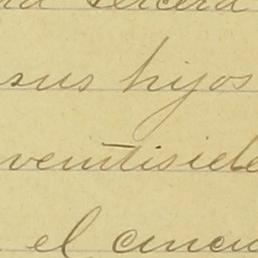 tercera
sus hijos
veintisiete
el cincu